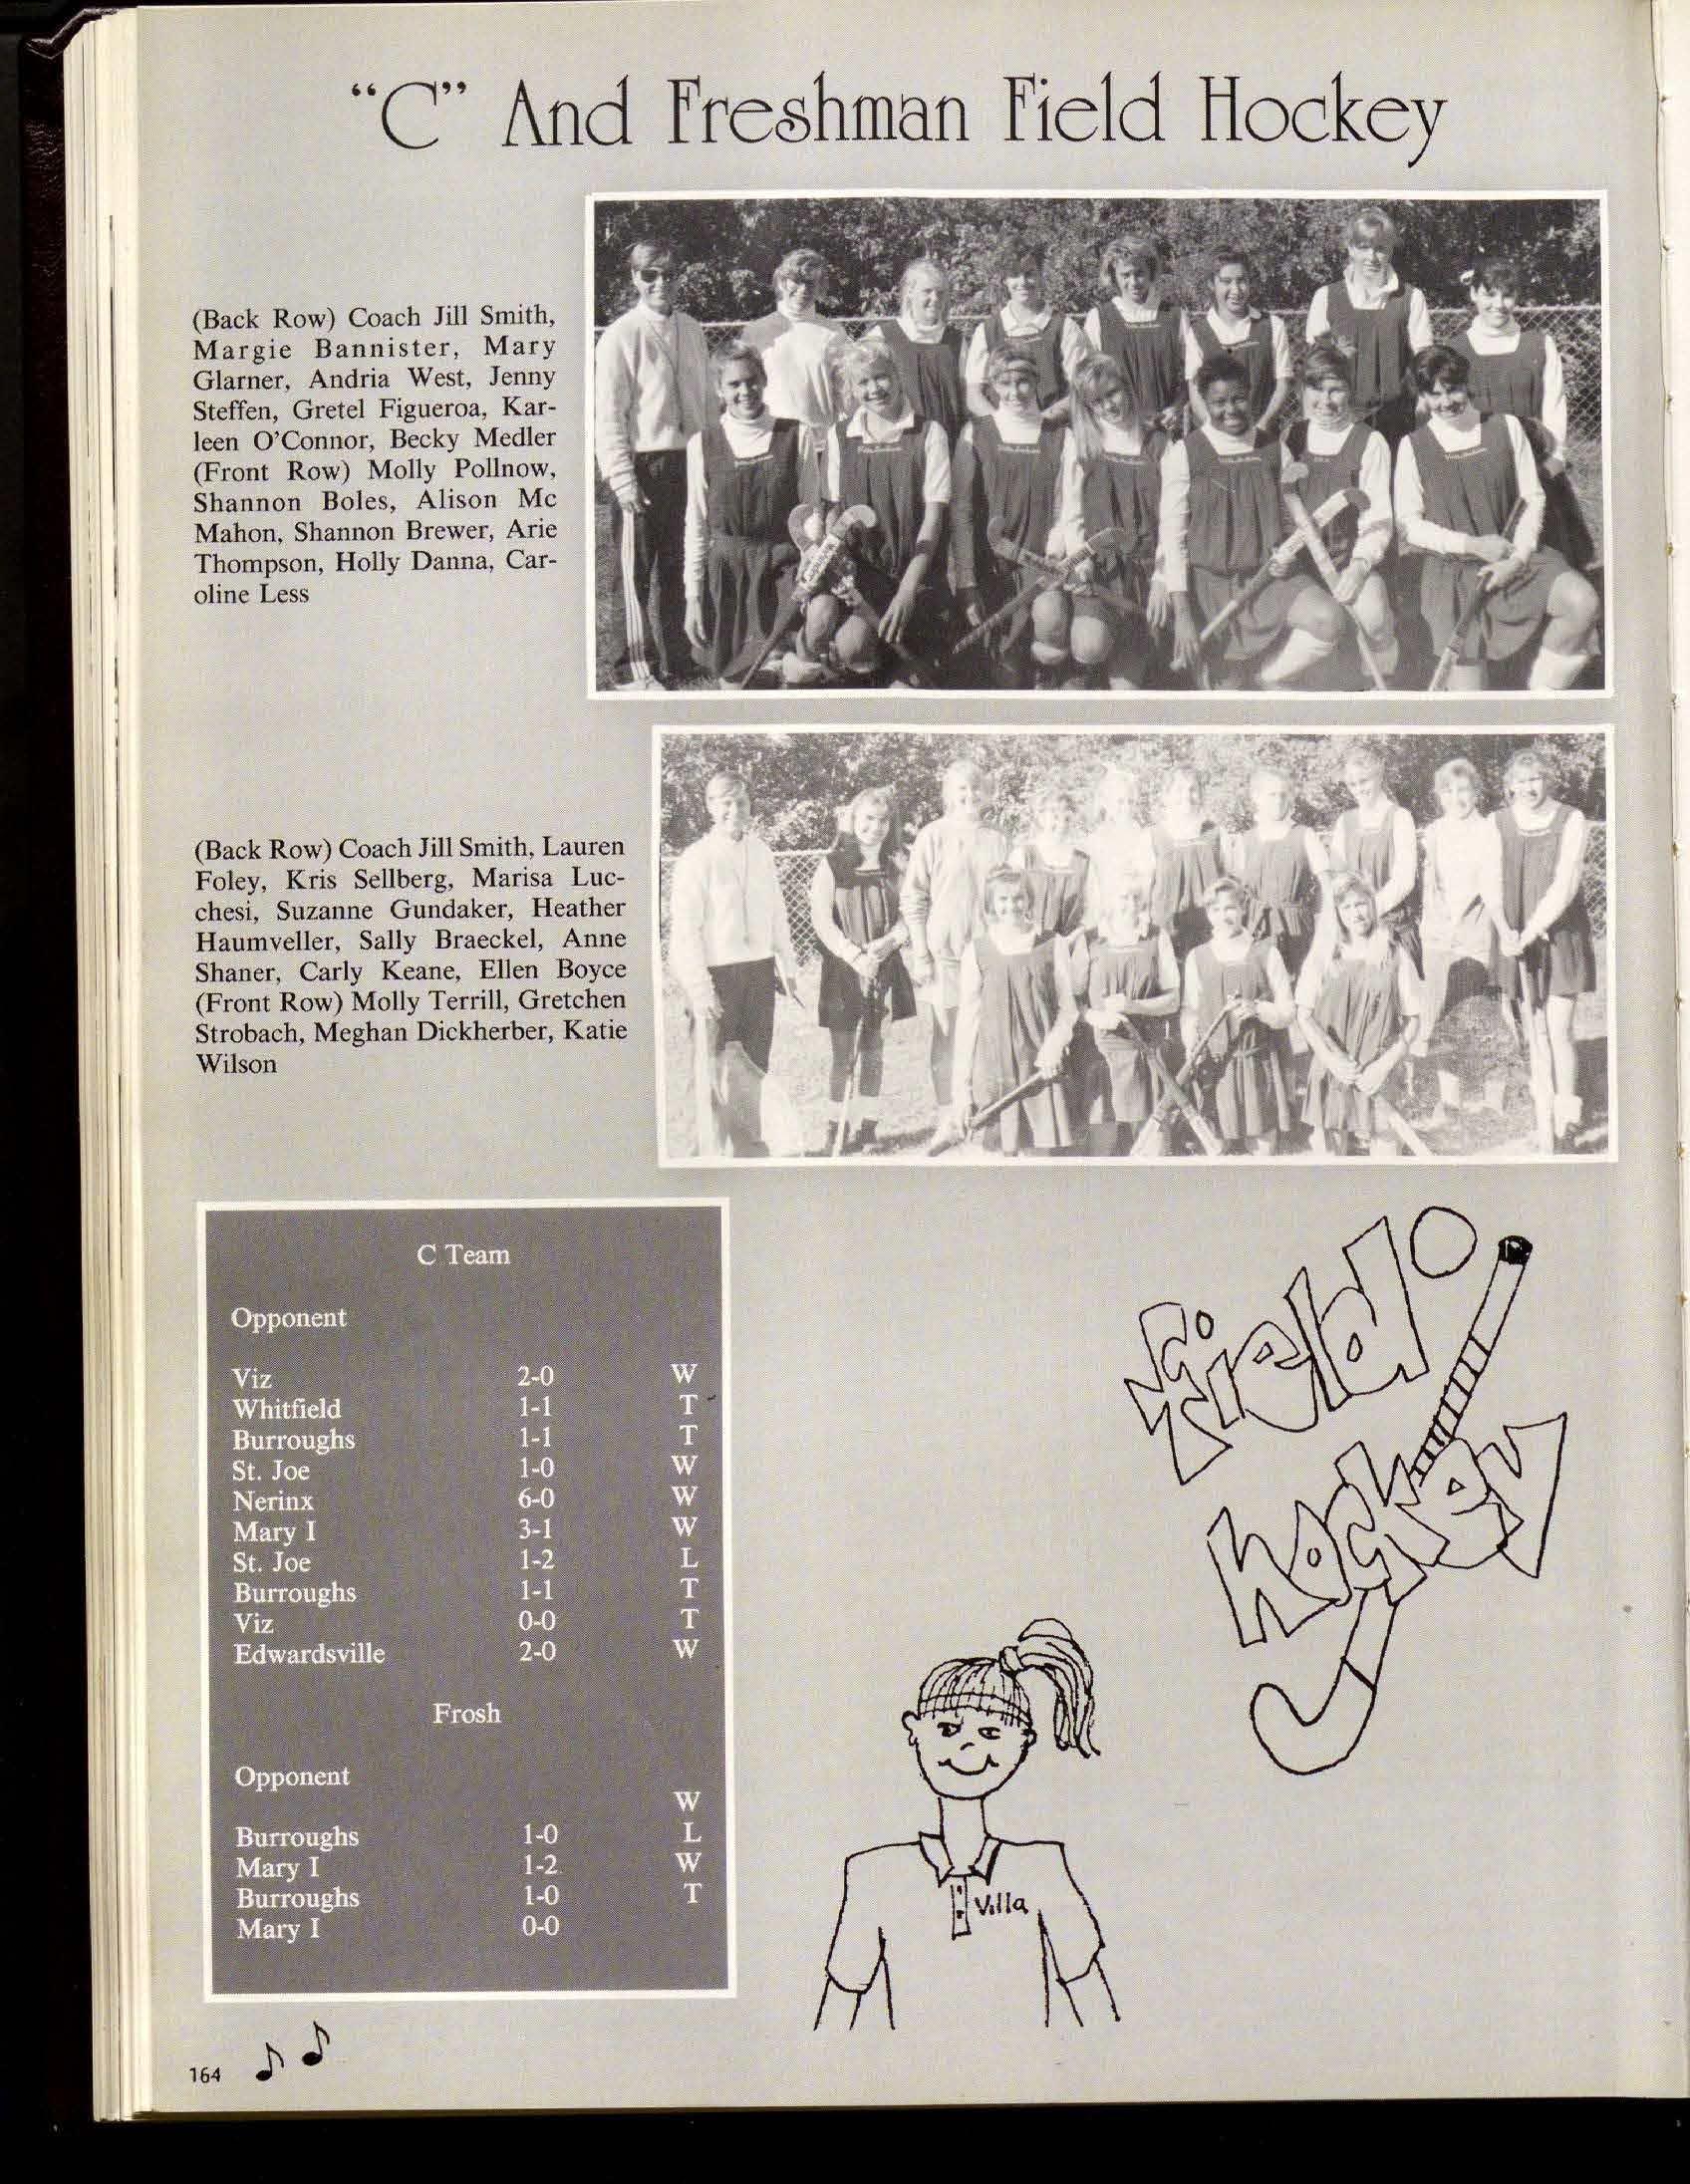 “C” And Freshman Field Hockey
(Back Row) Coach Jill Smith,
Margie Bannister, Mary
Glarner, Andria West, Jenny
Steffen, Gretel Figueroa, Kar-
leen O'Connor, Becky Medler
(Front Row) Molly Pollnow,
Shannon Boles, Alison Mc
Mahon, Shannon Brewer, Arie
Thompson, Holly Danna, Car-
oline Less
(Back Row) Coach Jill Smith, Lauren
Foley, Kris Sellberg, Marisa Luc-
chesi, Suzanne Gundaker, Heather
Haumveller, Sally Braeckel, Anne
Shaner, Carly Keane, Ellen Boyce
(Front Row) Molly Terrill, Gretchen
Strobach, Meghan Dickherber, Katie
Wilson
C Team
Opponent
Viz 2-0 W
Whitfield 1-1 T
Burroughs 1-1 T
St. Joe 1-0 W
Nerinx 6-0 W
Mary I 3-1 W
St. Joe 1-2 L
Burroughs 1-1 T
Viz 0-0 T
Edwardsville 2-0 W
Frosh
Opponent
W
Burroughs 1-0 L
Mary I 1-2 W
Burroughs 1-0 T
Mary I 0-0
field
hockey
Villa
164